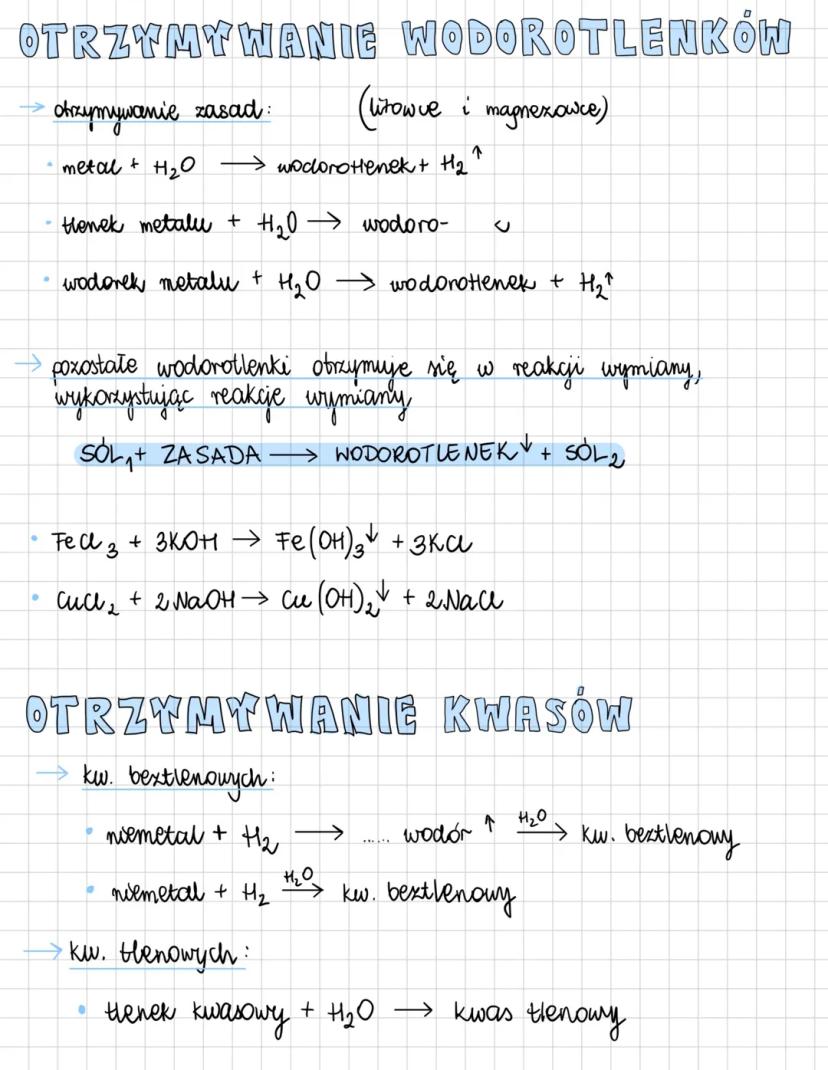 OTRZYMYWANIE WODOROTLENKÓW
→ otrzymywanie zasad: (litowce i magnezowce)
• metal + H₂O → wodorotlenek + H₂↑
• tlenek metalu + H₂O → wodoro-
• wodorek metalu + H₂O → wodorotlenek + H₂↑
→ pozostałe wodorotlenki otrzymuje się w reakcji wymiany,
wykorzystując reakcje wymiany
SÓL₁ + ZASADA → WODOROTLENEK↓ + SÓL₂
• FeCl₃ + 3KOH → Fe(OH)₃↓ + 3KCl
• CuCl₂ + 2NaOH → Cu(OH)₂↓ + 2NaCl
OTRZYMYWANIE KWASÓW
→ kw. beztlenowych:
• niemetal + H₂ → ...... wodór ↑ H₂O → kw. beztlenowy
• niemetal + H₂ H₂O → kw. beztlenowy
→ kw. tlenowych:
• tlenek kwasowy + H₂O → kwas tlenowy